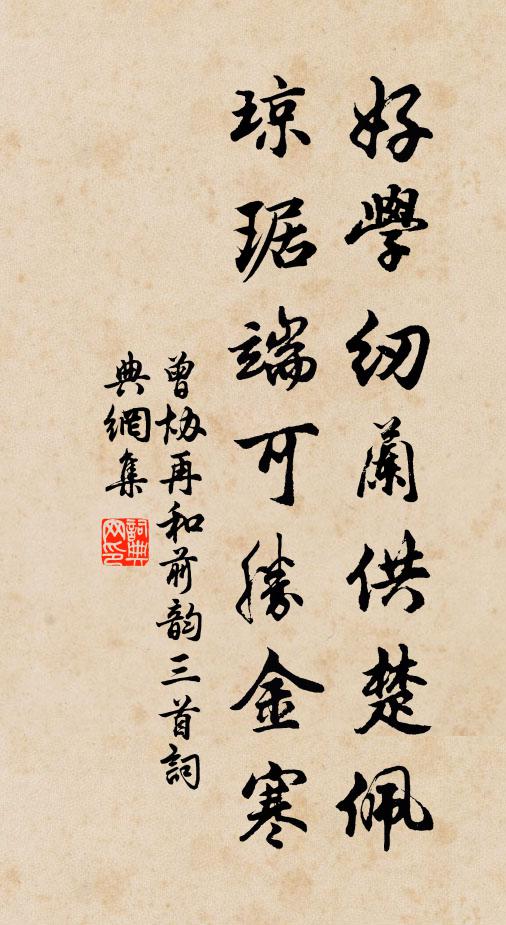 好學紉蘭供楚佩
琼琚端可勝金寒
曾协再和前韵三首詞
典網集
詞典
网印